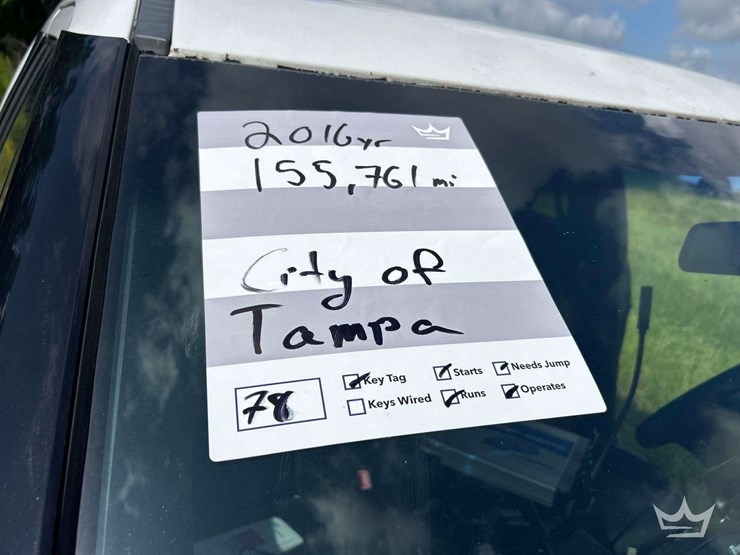 2016yr
155,761 mi
City of
Tampa
78
Key Tag Starts Needs Jump
Keys Wired Runs Operates